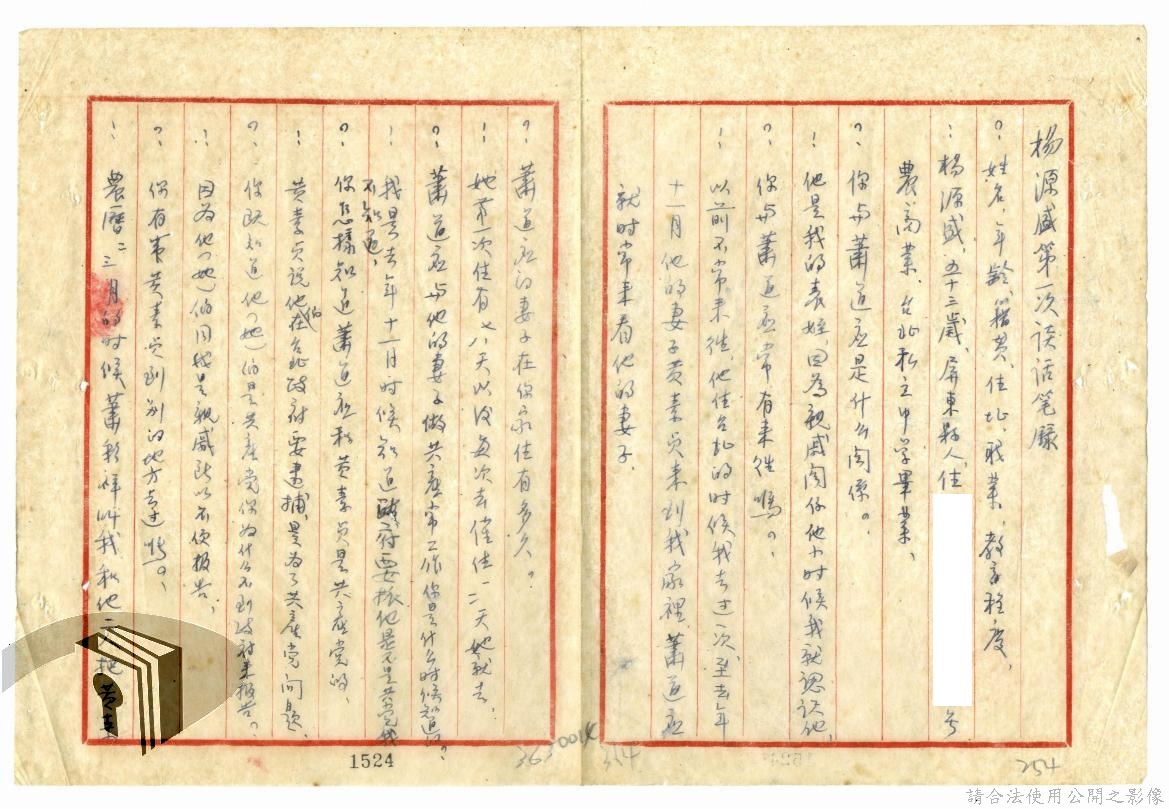 楊源盛第一次谈话笔录
？姓名，年齡，籍贯，住址，职業，教育程度，
：楊源盛，五十三歲，屏東縣人，住 号
農商業，台北私立中学畢業，
？你与蕭道应是什么関係。
：他是我的表姪，因為親戚関係他小时候我就認识他，
？你与蕭道应常有来往嗎？
：以前不常来往，他住台北的时候我去过一次，至去年
十一月他的妻子黄素贞来到我家裡，蕭道应
就时常来看他的妻子。
？蕭道应的妻子在你家住有多久。
：她第一次住有七八天以後每次去僅住一二天她就去，
？蕭道应与他的妻子做共産党工作你是什么时候知道的。
：我是去年十一月时候知道政府要捉他是不是共党我
不知道，
？你怎樣知道蕭道应和黄素贞是共産党的，
：黄素贞说他们在台北政府要逮捕，是为了共産党问题，
？你既知道他（她）们是共産党你为什么不到政府来报告。
：因为他（她）们同我是親戚所以不便报告，
？你有带黄素贞到别的地方去过嗎？
：農曆二三月的时候蕭彩祥叫我和他二人把黄素
1524
請合法使用公開之影像